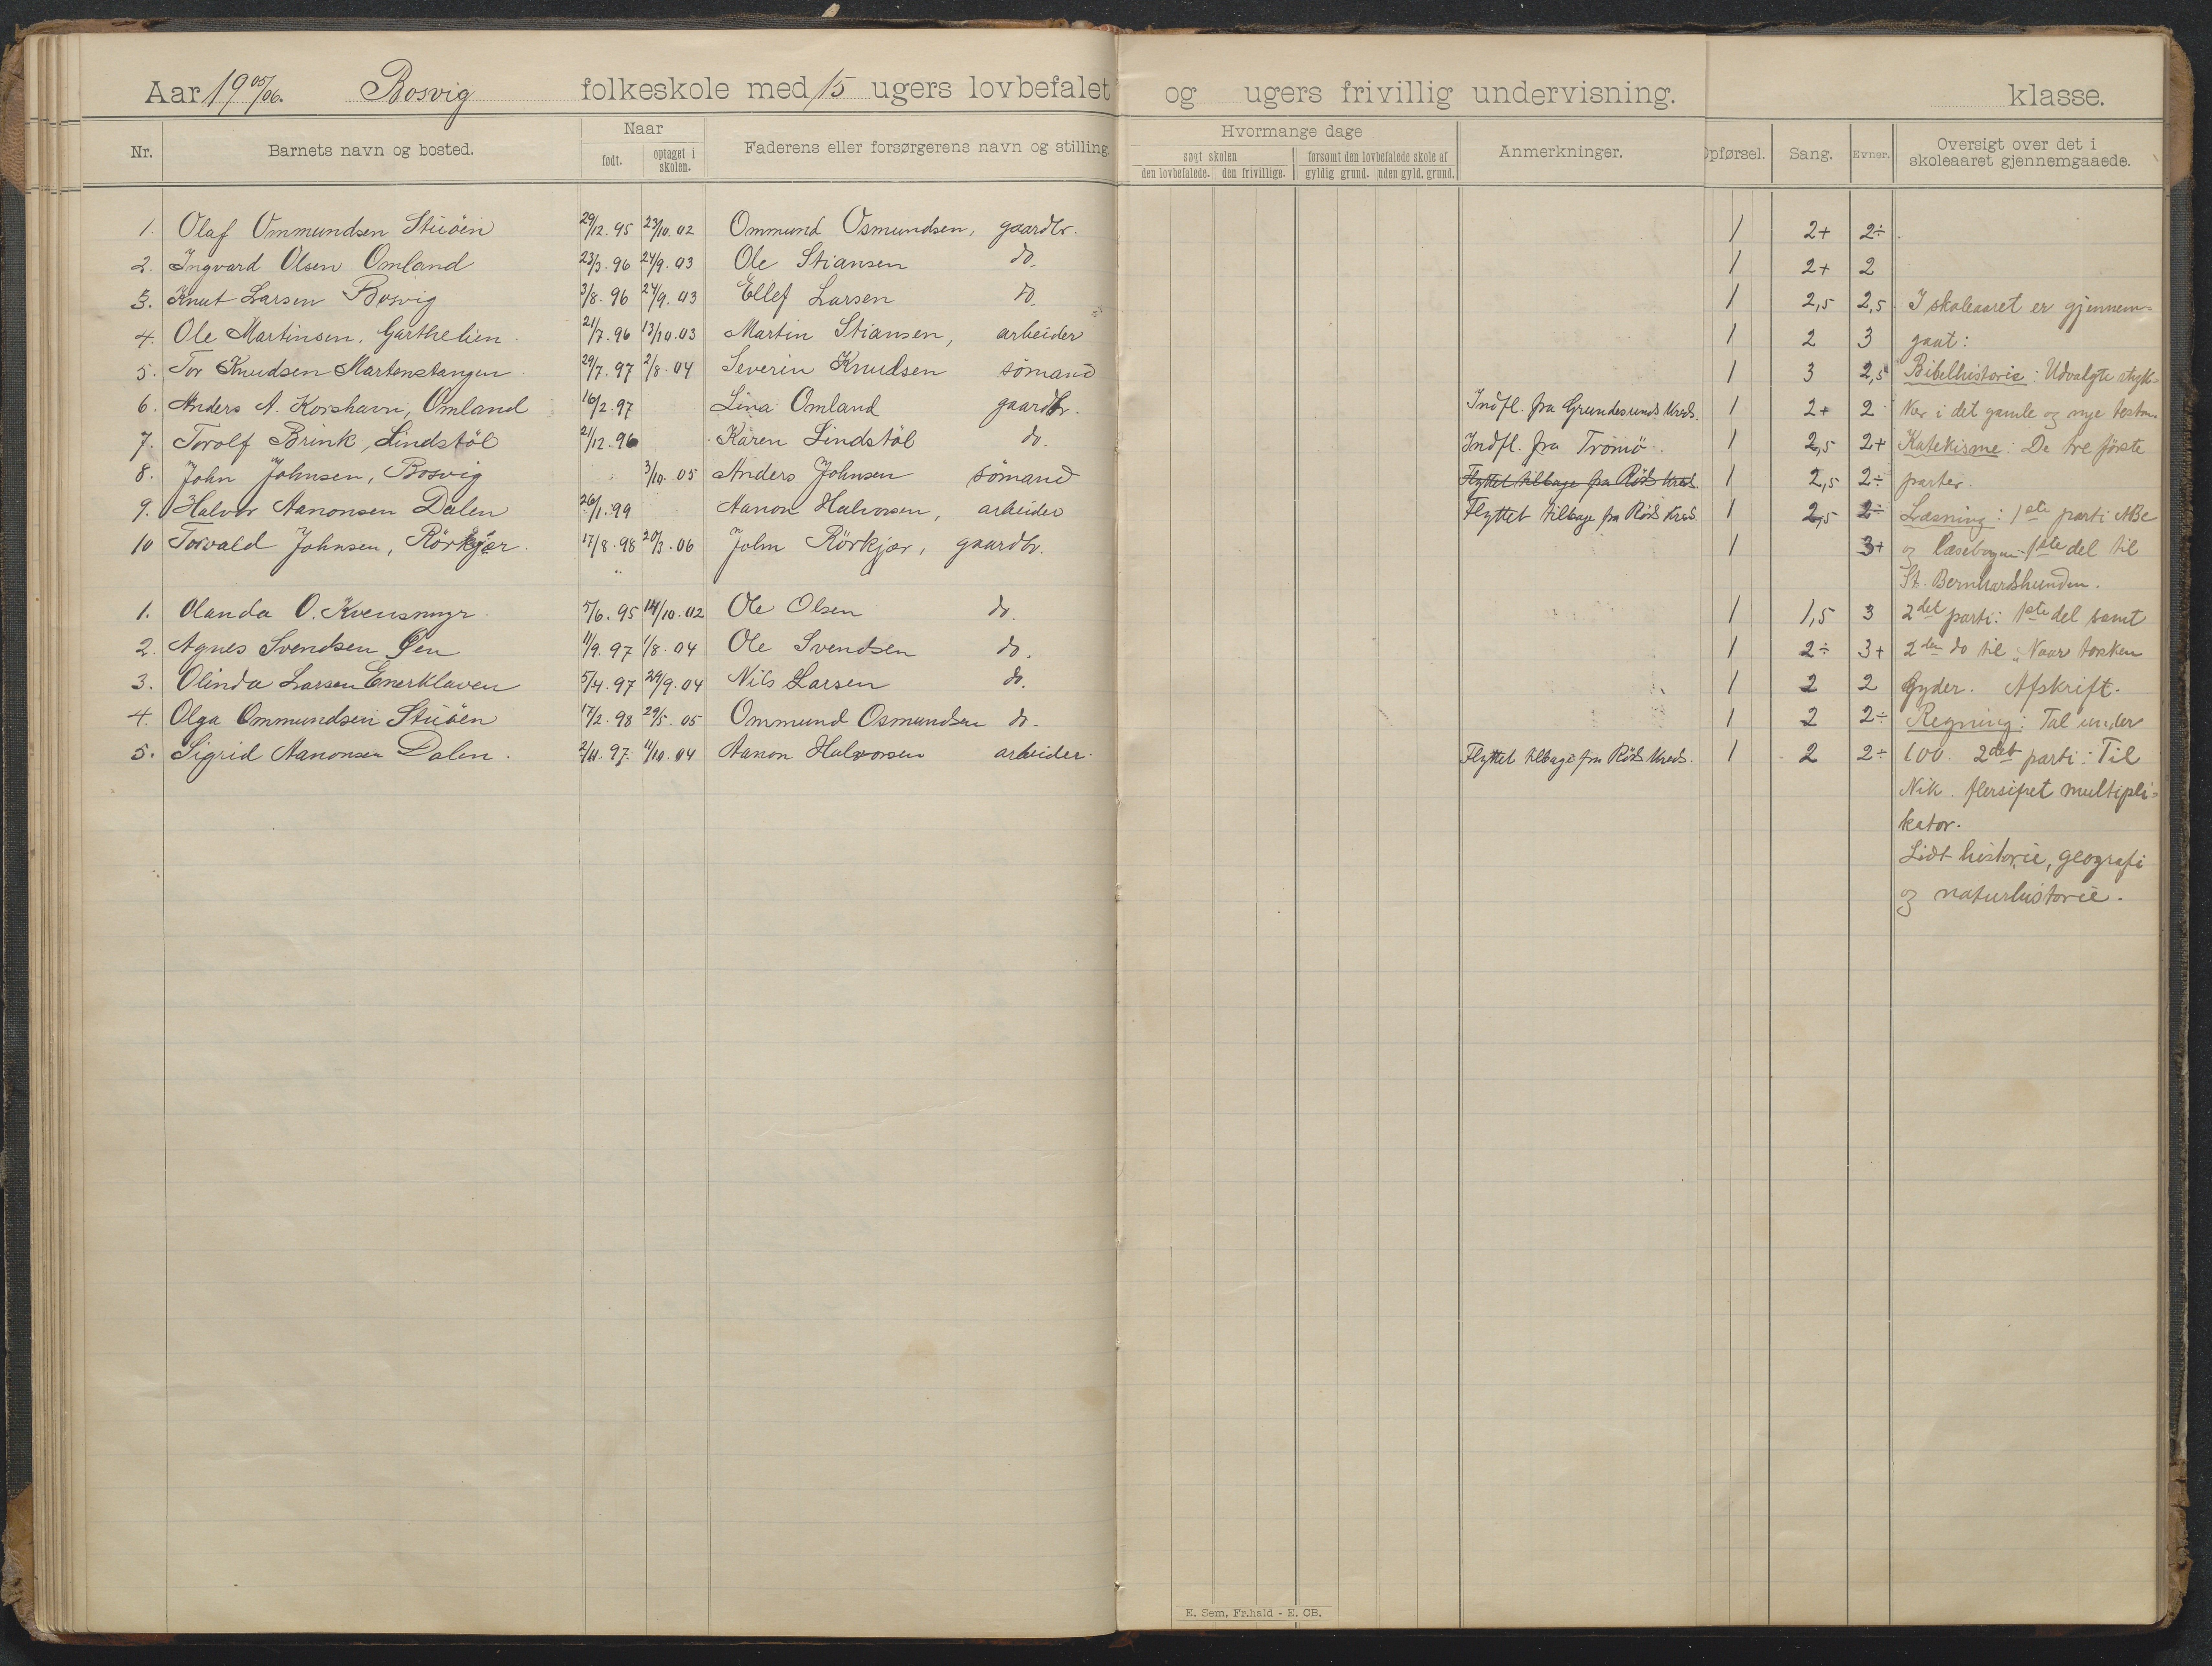 Aar 19 05/06. Bosvig folkeskole med 15 ugers lovbefalet og ugers frivillig undervisning. klasse.
Nr. Barnets navn og bosted. Naar født. optaget i skolen. Faderens eller forsørgerens navn og stilling. Hvormange dage søgt skolen den lovbefalede. den frivillige. forsømt den lovbefalede skole af gyldig grund. uden gyld. grund. Anmerkninger. Opførsel. Sang. Evner. Oversigt over det i skoleaaret gjennemgaaede.
1. Olaf Ommundsen Stuöen 29/12.95 23/10.02 Ommund Osmundsen, gaardbr. 1 2+ 2÷
2. Ingvard Olsen Omland 23/3.96 24/9.03 Ole Stiansen do. 1 2+ 2
3. Knut Larsen Bosvig 3/8.96 24/9.03 Ellef Larsen do. 1 2,5 2,5 I skoleaaret er gjennem-
4. Ole Martinsen, Garthelien 21/7.96 13/10.03 Martin Stiansen, arbeider 1 2 3 gaat:
5. Tor Knudsen Martenstangen 29/7.97 2/8.04 Severin Knudsen sömand 1 3 2,5 Bibelhistorie: Udvalgte styk-
6. Anders A. Korshavn, Omland 16/2.97 Lina Omland gaardbr. Indfl. fra Grundesunds Kreds. 1 2+ 2 ker i det gamle og nye testam.
7. Torolf Brink, Lindstöl 21/12.96 Karen Lindstöl do. Indfl. fra Tromö. 1 2,5 2+ Katekisme: De tre förste
8. John Johnsen, Bosvig 3/10.05 Anders Johnsen sömand Flyttet tilbage fra Röds Kreds. 1 2,5 2÷ parter.
9. Halvor Aanonsen Dalen 26/1.99 Aanon Halvorsen, arbeider Flyttet tilbage fra Röds Kreds 1 2,5 2÷ Læsning: 1ste parti ABC
10 Torvald Johnsen, Rörkjær. 17/8.98 20/3.06 John Rörkjær, gaardbr. 1 3+ og læsebogen 1ste del til
St. Bernhardshunden.
1. Olanda O. Kvensmyr. 5/6.95 14/10.02 Ole Olsen do. 1 1,5 3 2det parti: 1ste del samt
2. Agnes Svendsen Öen 11/9.97 1/8.04 Ole Svendsen do. 1 2÷ 3+ 2den do til "Naar torsken
3. Olinda Larsen Enerklaven 5/4.97 29/9.04 Nils Larsen do. 1 2 2 gyder. Afskrift.
4. Olga Ommundsen Stuöen 17/2.98 29/5.05 Ommund Osmundsen do. 1 2 2÷ Regning: Tal under
5. Sigrid Aanonsen Dalen. 2/11.97. 11/10.04 Aanon Halvorsen arbeider. Flyttet tilbage fra Röds Kreds. 1 2 2÷ 100. 2det parti: Til
Nik. flersifret multipli-
kator.
Lidt historie, geografi
og naturhistorie.
E. Sem, Fr.hald - E. CB.